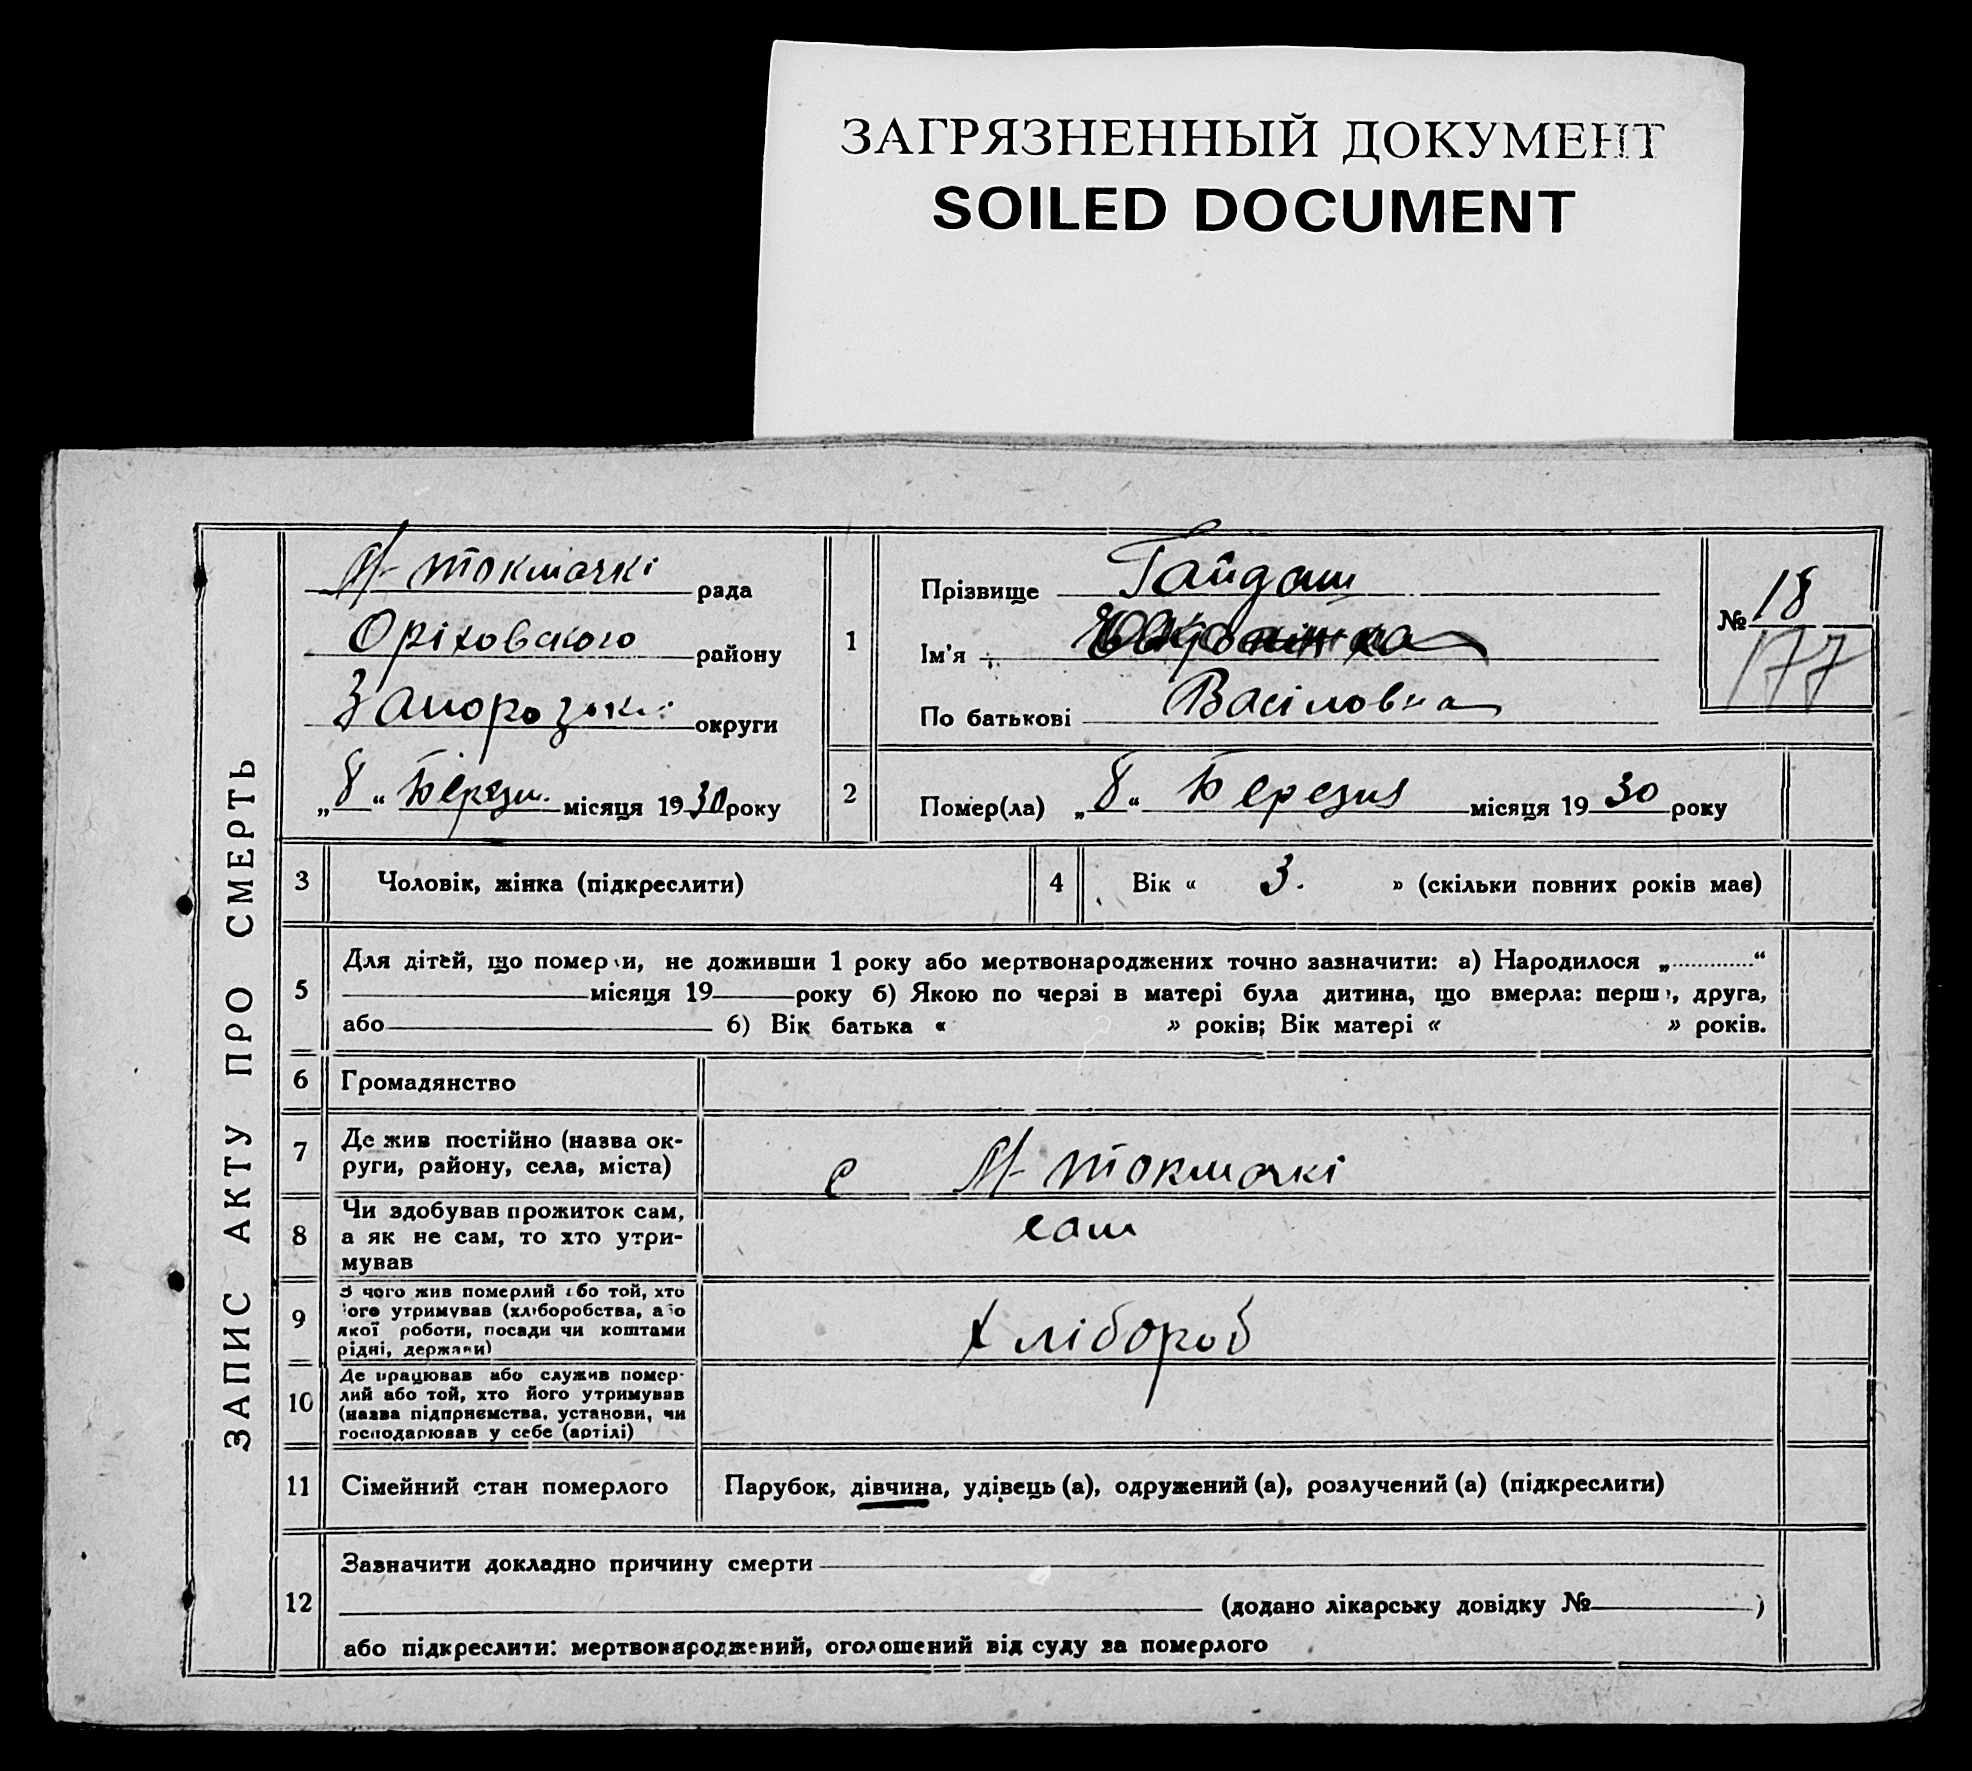 ЗАГРЯЗНЕННЫЙ ДОКУМЕНТ
SOILED DOCUMENT
ЗАПИС АКТУ ПРО СМЕРТЬ
М-токмачкі рада
Оріховського району
округи
„8“ Березн. місяця 1930 року
1
Прізвище Гайдаш
Ім'я
По батькові Васіловна
№ 18
177
2
Помер(ла) „8“ Березня місяця 19 30 року
3 Чоловік, жінка (підкреслити)
4 Вік « 3. » (скільки повних років має)
5 Для дітей, що помер и, не доживши 1 року або мертвонароджених точно зазначити: а) Народилося „.............“
місяця 19 року б) Якою по черзі в матері була дитина, що вмерла: перш , друга,
або б) Вік батька « » років; Вік матері « » років.
6 Громадянство
7 Де жив постійно (назва ок-
руги, району, села, міста)
с М-токмачкі
8 Чи здобував прожиток сам,
а як не сам, то хто утри-
мував
сам
9 З чого жив померлий або той, хто
його утримував (хліборобства, або
якої роботи, посади чи коштами
рідні, держави)
хлібороб
10 Де працював або служив помер-
лий або той, хто його утримував
(назва підприємства, установи, чи
господарював у себе (артілі)
11 Сімейний стан померлого Парубок, дівчина, удівець (а), одружений (а), розлучений (а) (підкреслити)
12 Зазначити докладно причину смерти
(додано лікарську довідку № )
або підкреслити: мертвонароджений, оголошений від суду за померлого